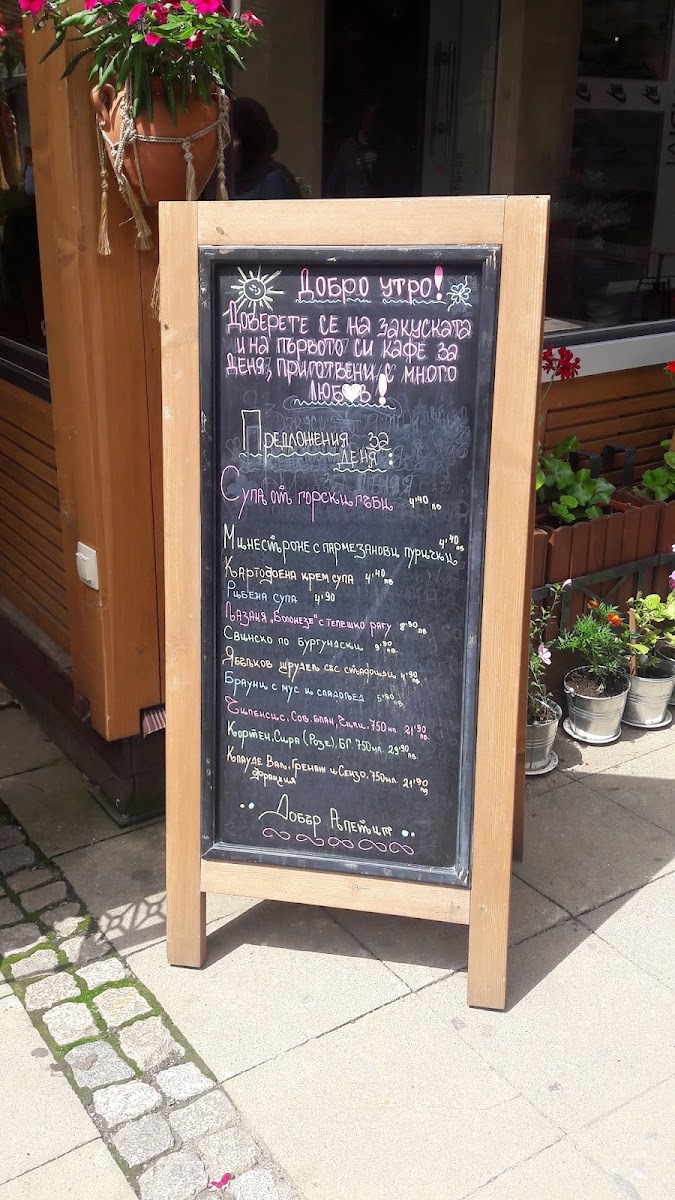 Добро утро!
Доверете се на закуската
и на първото си кафе за
деня, приготвени с много
любовь!
Предложения за
деня:
Супа от горски гъби 4'40 лв
Минестроне с пармезанови пурички 4'40 лв
Картофена крем супа 4'40 лв
Рибена супа 4'90
Лазаня „Болонезе" с телешко рагу 8'90 лв.
Свинско по бургундски 9'90 лв.
Ябълков щрудел със стафиди 4'90 лв.
Брауни с мус и сладолед 5'90 лв.
Чипенсис, Сов. блан, Чили, 750мл. 21'90 лв.
Кортен, Сира (Розе), БГ. 750мл. 29'90 лв.
Клауде Вал, Гренаж и Сензо, 750мл. 21'90 лв
Франция
Добър Апетит